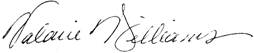 Valarie Williams